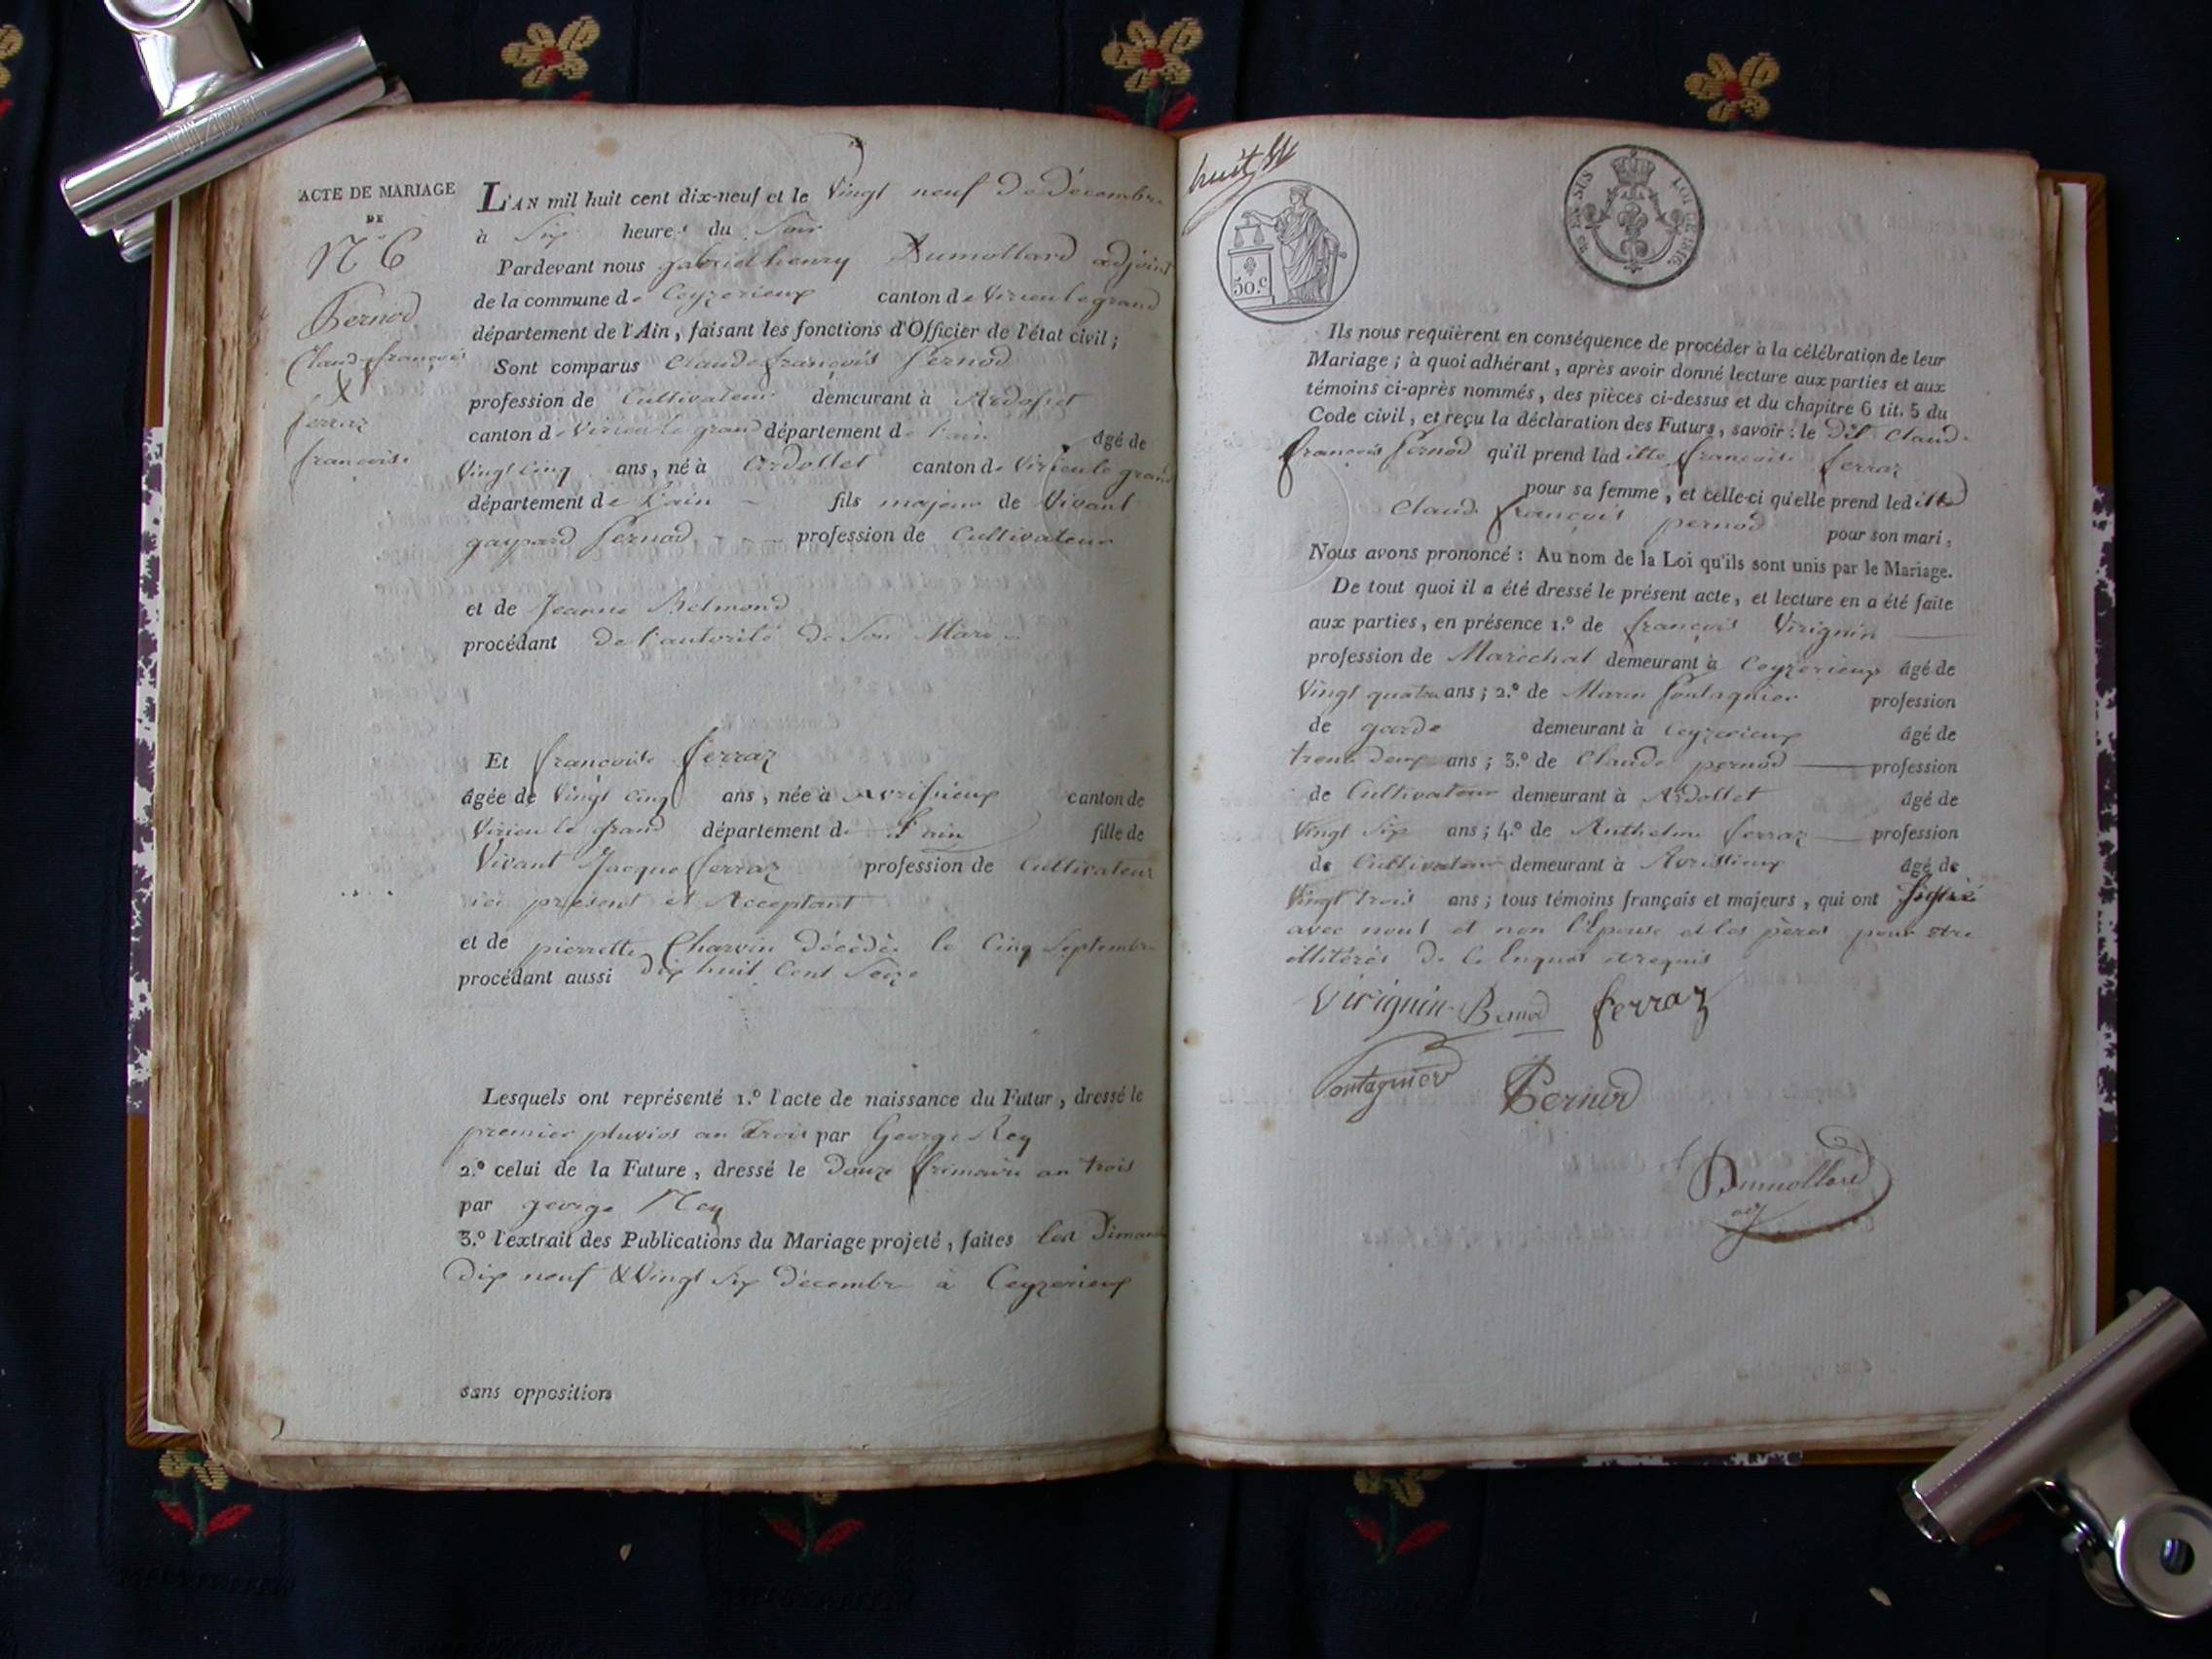 ACTE DE MARIAGE
DE
N° 6
Pernod
Claude françois
&
ferraz
francoise
L'AN mil huit cent dix-neuf et le Vingt neuf De décembre
à Six heures du Soir
Pardevant nous gabriel henry Dumollard adjoint
de la commune de Ceyzerieux canton de Virieu le grand
département de l'Ain, faisant les fonctions d'Officier de l'état civil ;
Sont comparus Claude françois Pernod
profession de Cultivateur demeurant à
canton de Virieu le grand département de l'ain âgé de
Vingt cinq ans, né à Ardollet canton de Virieu le grand
département de L'ain fils majeur de Vivant
gaspard Pernod - - - profession de Cultivateur
et de Jeanne Belmond
procédant De l'autorité De Son
Et françoise ferraz
âgée de Vingt cinq ans, née à Avrissieux canton de
Virieu le grand département de l'ain fille de
Vivant Jacque ferraz profession de Cultivateur
ici présent et Acceptant
et de pierrette Charvin décédée le Cinq Septembre
procédant aussi dix huit Cent Seize
Lesquels ont représenté 1.° l'acte de naissance du Futur, dressé le
premier pluvios an trois par George Rey
2.° celui de la Future, dressé le Douze frimaire an trois
par george Rey
3.° l'extrait des Publications du Mariage projeté, faites les Dimanche
Dix neuf & Vingt Six décembre à Ceyzerieux
sans opposition
huit
30.c
LOI DE 1816.
Ils nous requièrent en conséquence de procéder à la célébration de leur
Mariage ; à quoi adhérant, après avoir donné lecture aux parties et aux
témoins ci-après nommés, des pièces ci-dessus et du chapitre 6 tit. 5 du
Code civil, et reçu la déclaration des Futurs, savoir : le dit Claude
françois Pernod qu'il prend lad itte françoise ferraz
pour sa femme, et celle-ci qu'elle prend led itte
Claude françois pernod pour son mari,
Nous avons prononcé : Au nom de la Loi qu'ils sont unis par le Mariage.
De tout quoi il a été dressé le présent acte, et lecture en a été faite
aux parties, en présence 1.° de françois Virignin
profession de Maréchal demeurant à Ceyzerieux âgé de
Vingt quatre ans ; 2.° de Marin Pontagnier profession
de garde demeurant à Ceyzerieux âgé de
trente deux ans ; 3.° de Claude pernod profession
de Cultivateur demeurant à Ardollet âgé de
Vingt Six ans ; 4.° de Anthelme ferraz profession
de Cultivateur demeurant à Avrissieux âgé de
Vingt trois ans ; tous témoins français et majeurs, qui ont signé
avec nous et non l'Epouse et les pères pour etre
illitérés De ce Enquis et requis
Virignin Pernod ferraz
Pontagnier Pernod
Dumollard
adj